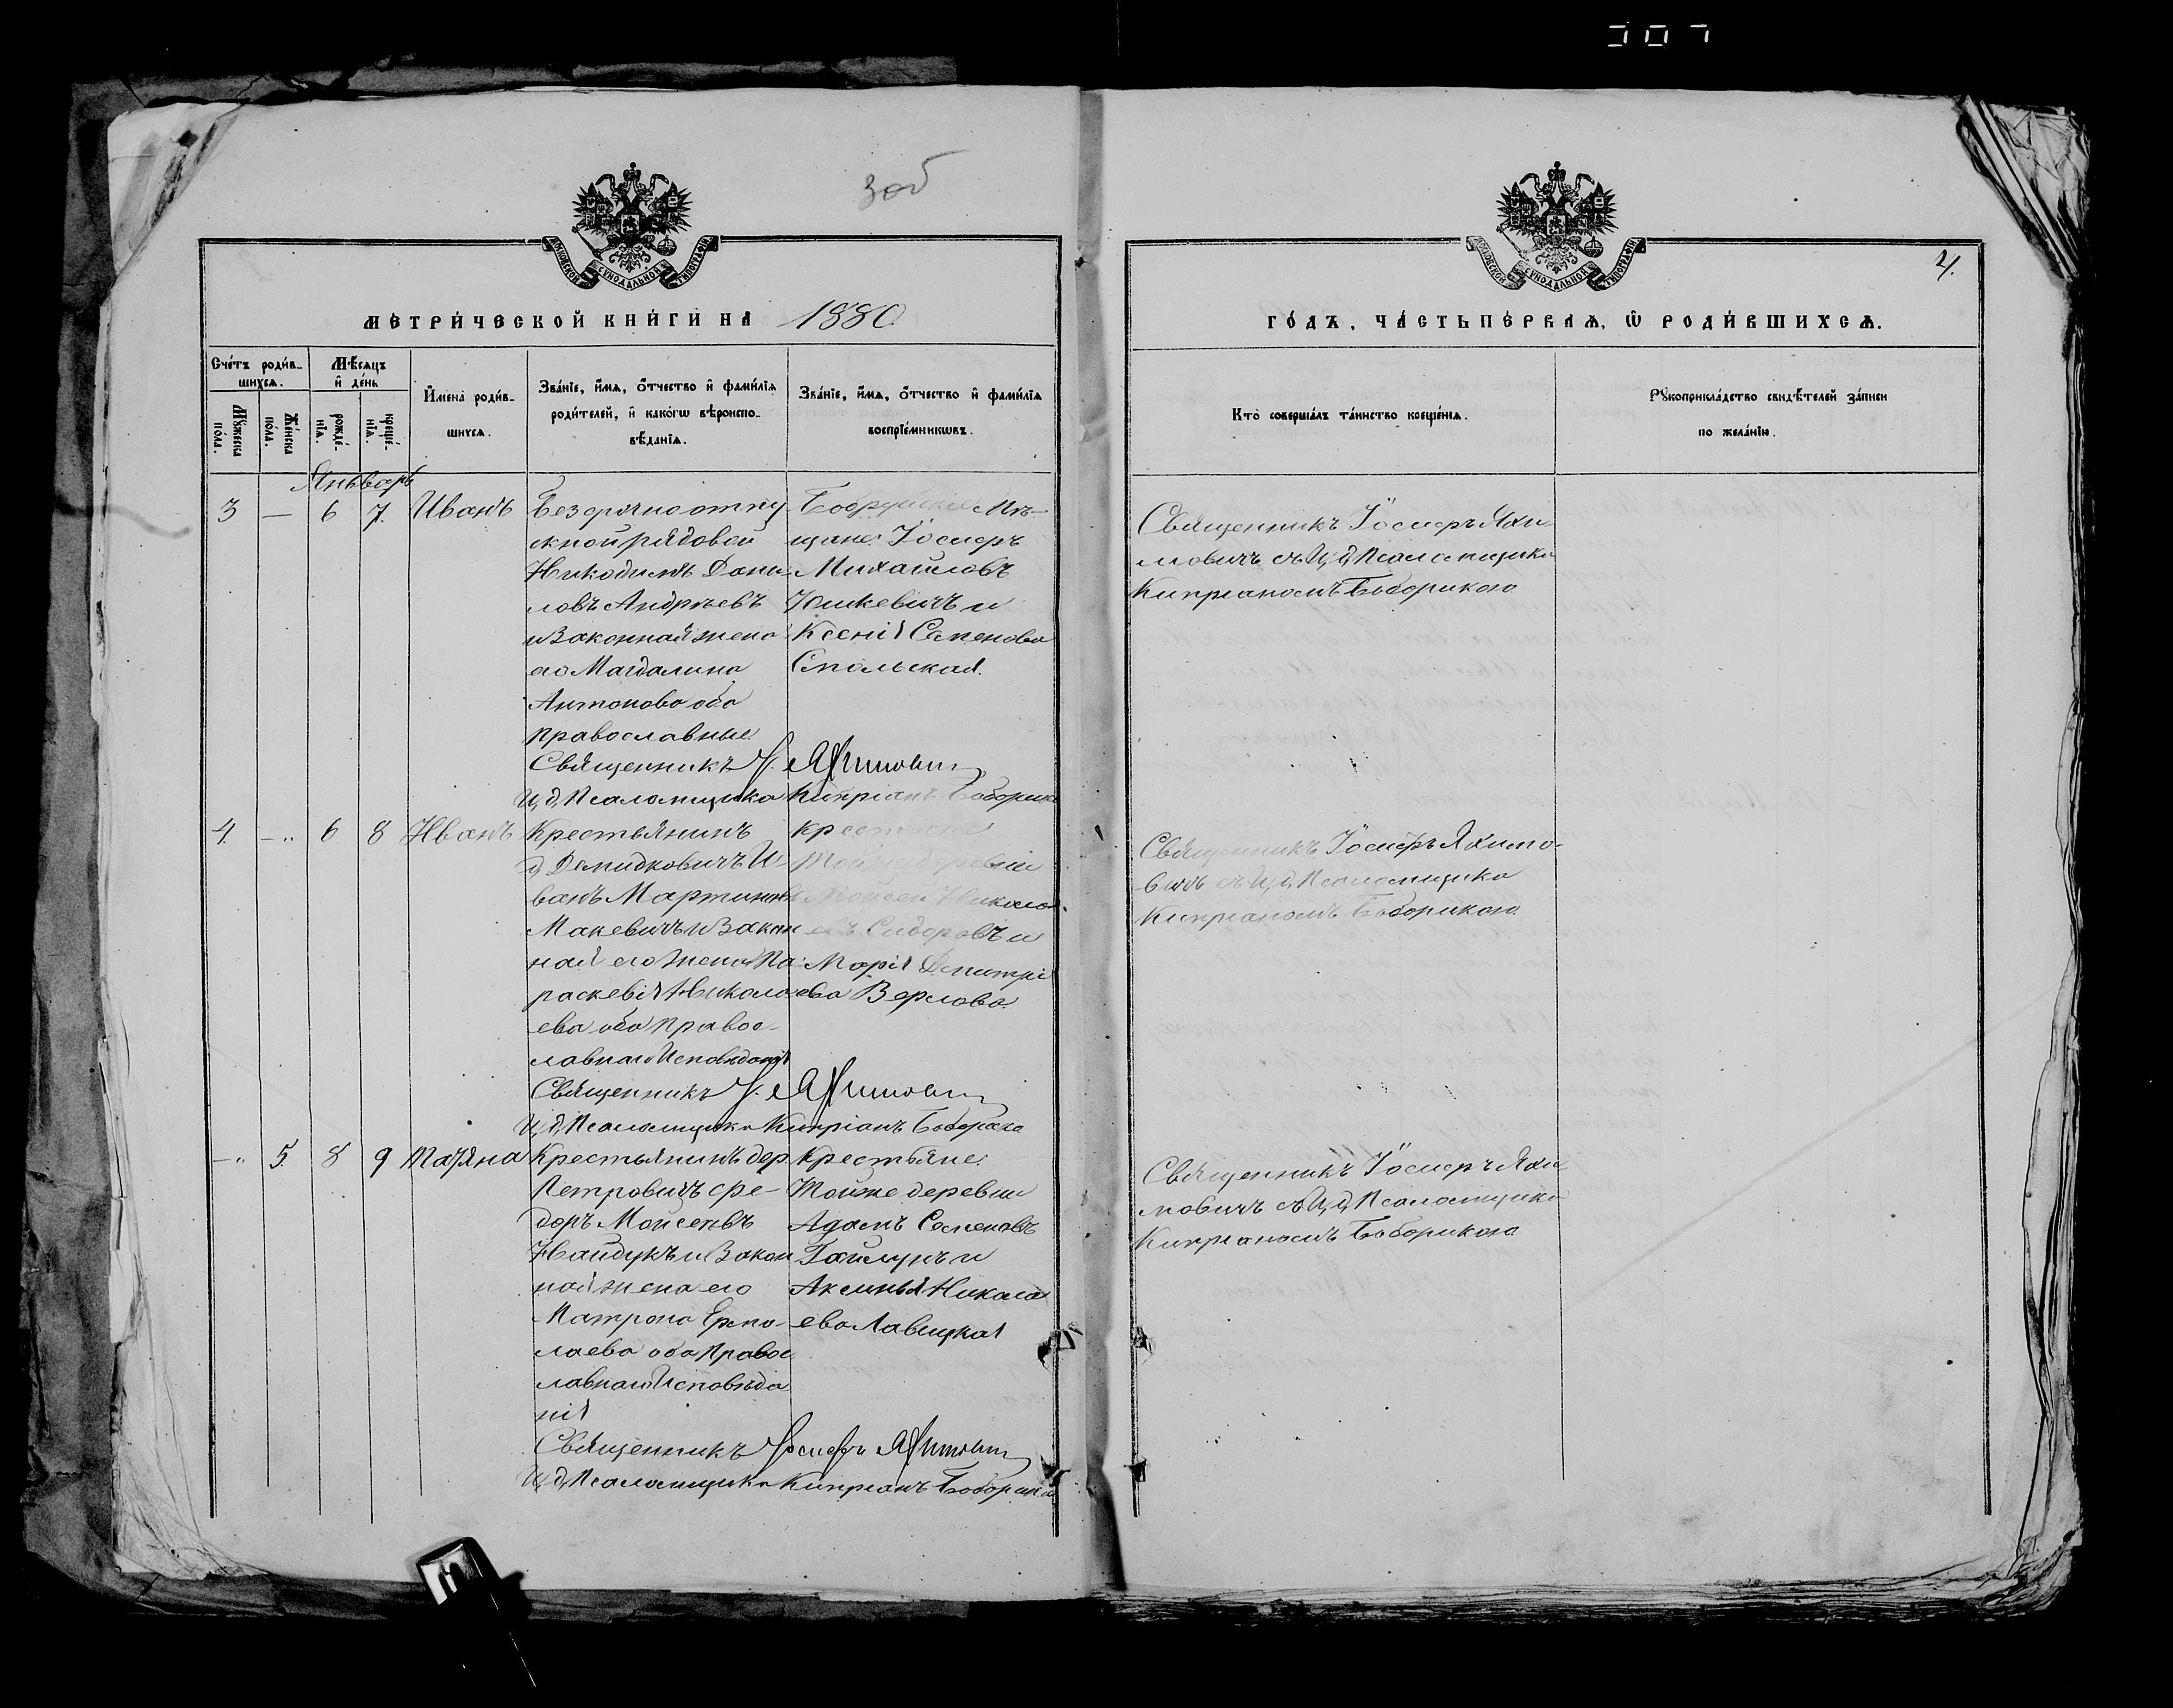 307
зоб
МОСКОВСКОЙ СѴНОДАЛЬНОЙ ТИПОГРАФІИ
МЕТРИ́ЧЕСКОЙ КНИ́ГИ НА 1880
Сче́тъ роди́в-
шихсѧ.
Мѣ́сяцъ
и де́нь
Мꙋ́жеска по́ла.
Же́нска по́ла.
рожде́-нїѧ.
креще́-нїѧ.
Имена̀ роди́в-
шихсѧ.
Зва́нїе, и́мѧ, о́тчество и фами́лїѧ
роди́телей, и како́гѡ вѣроиспо-
вѣ́данїѧ.
Зва́нїе, и́мѧ, о́тчество и фами́лїѧ
воспрїе́мникѡвъ.
Январь
3 — 6 7. Иванъ
Безсрочноотпу
скной рядовой
Никодимъ Дани-
ловъ Андреевъ
и Законная жена
его Магдалина
Антонова оба
православные
Бобруйскіе Мѣ-
щане: Іосифъ
Михайловъ
Юшкевичъ и
Ксенія Семенова
Смольская.
Священникъ І. Яхимовичъ
И, д, Псаломщика Кипріанъ Боборика
4. — 6 8 Иванъ
Крестьянинъ
д, Демидковичъ И-
ванъ Мартиновъ
Макевичъ и Закон
ная его жена Па-
раскевія Никола
ева оба Правос-
лавнаго Исповѣданія
крестьяне
Тойже деревни
Моисей Никола-
евъ Сидоровъ и
Марія Димитрі
ева Верлова
Священникъ І. Яхимовичъ
И, д, Псаломщика Кипріанъ Боборика
— 5. 8 9 Татяна
Крестьянинъ дер
Петровичъ Фе-
доръ Моисеевъ
Найдукъ и Закон
ная жена его
Матрона Ермо-
лаева оба Правос
лавнаго Исповѣда
нія
Крестьяне
Тойже деревни
Адамъ Семеновъ
Гайлунъ и
Аксинья Никола
ева Лавицкая
Священникъ Іосифъ Яхимовичъ
И, д, Псаломщика Кипріанъ Боборика
МОСКОВСКОЙ СѴНОДАЛЬНОЙ ТИПОГРАФІИ
4.
ГО́ДЪ, ЧА́СТЬ ПЕ́РВАѦ, Ѡ РОДИ́ВШИХСѦ.
Кто̀ соверша́лъ та́инство креще́нїѧ.
Рꙋкоприкла́дство свидѣ́телей за́писи
по жела́нїю.
Священникъ Іосифъ Яхи-
мовичъ съ И, д, Псаломщика
Кипріаномъ Боборикою
Священникъ Іосифъ Яхимо-
вичъ съ И, д, Псаломщика
Кипріаномъ Боборикою
Священникъ Іосифъ Яхи-
мовичъ съ И, д, Псаломщика
Кипріаномъ Боборикою